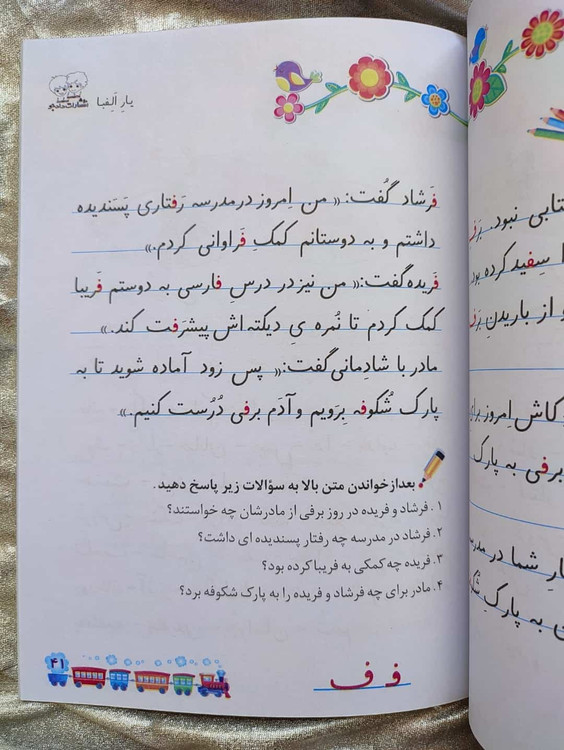 یارِ اَلِفبا
فَرشاد گُفت: «من اِمروز در مدرسه رَفتاری پَسَندیده
داشتم و به دوستانم کمکِ فَراوانی کردم.»
فَریده گفت: «من نیز در درسِ فارسی به دوستم فَریبا
کمک کردم تا نُمره یِ دیکته اش پیشرَفت کند.»
مادر با شادِمانی گفت: «پس زود آماده شوید تا به
پارک شُکوفه بِرَویم و آدَم برفی دُرُست کنیم.»
بعد از خواندن متن بالا به سؤالات زیر پاسخ دهید.
۱. فرشاد و فریده در روز برفی از مادرشان چه خواستند؟
۲. فرشاد در مدرسه چه رفتار پسندیده ای داشت؟
۳. فریده چه کمکی به فریبا کرده بود؟
۴. مادر برای چه فرشاد و فریده را به پارک شکوفه برد؟
فـ ف
۴۱
نبود.
سِفید کرده
و از باریدنِ
کاش اِمروز
برفی به پارک
شما در
به پارکِ